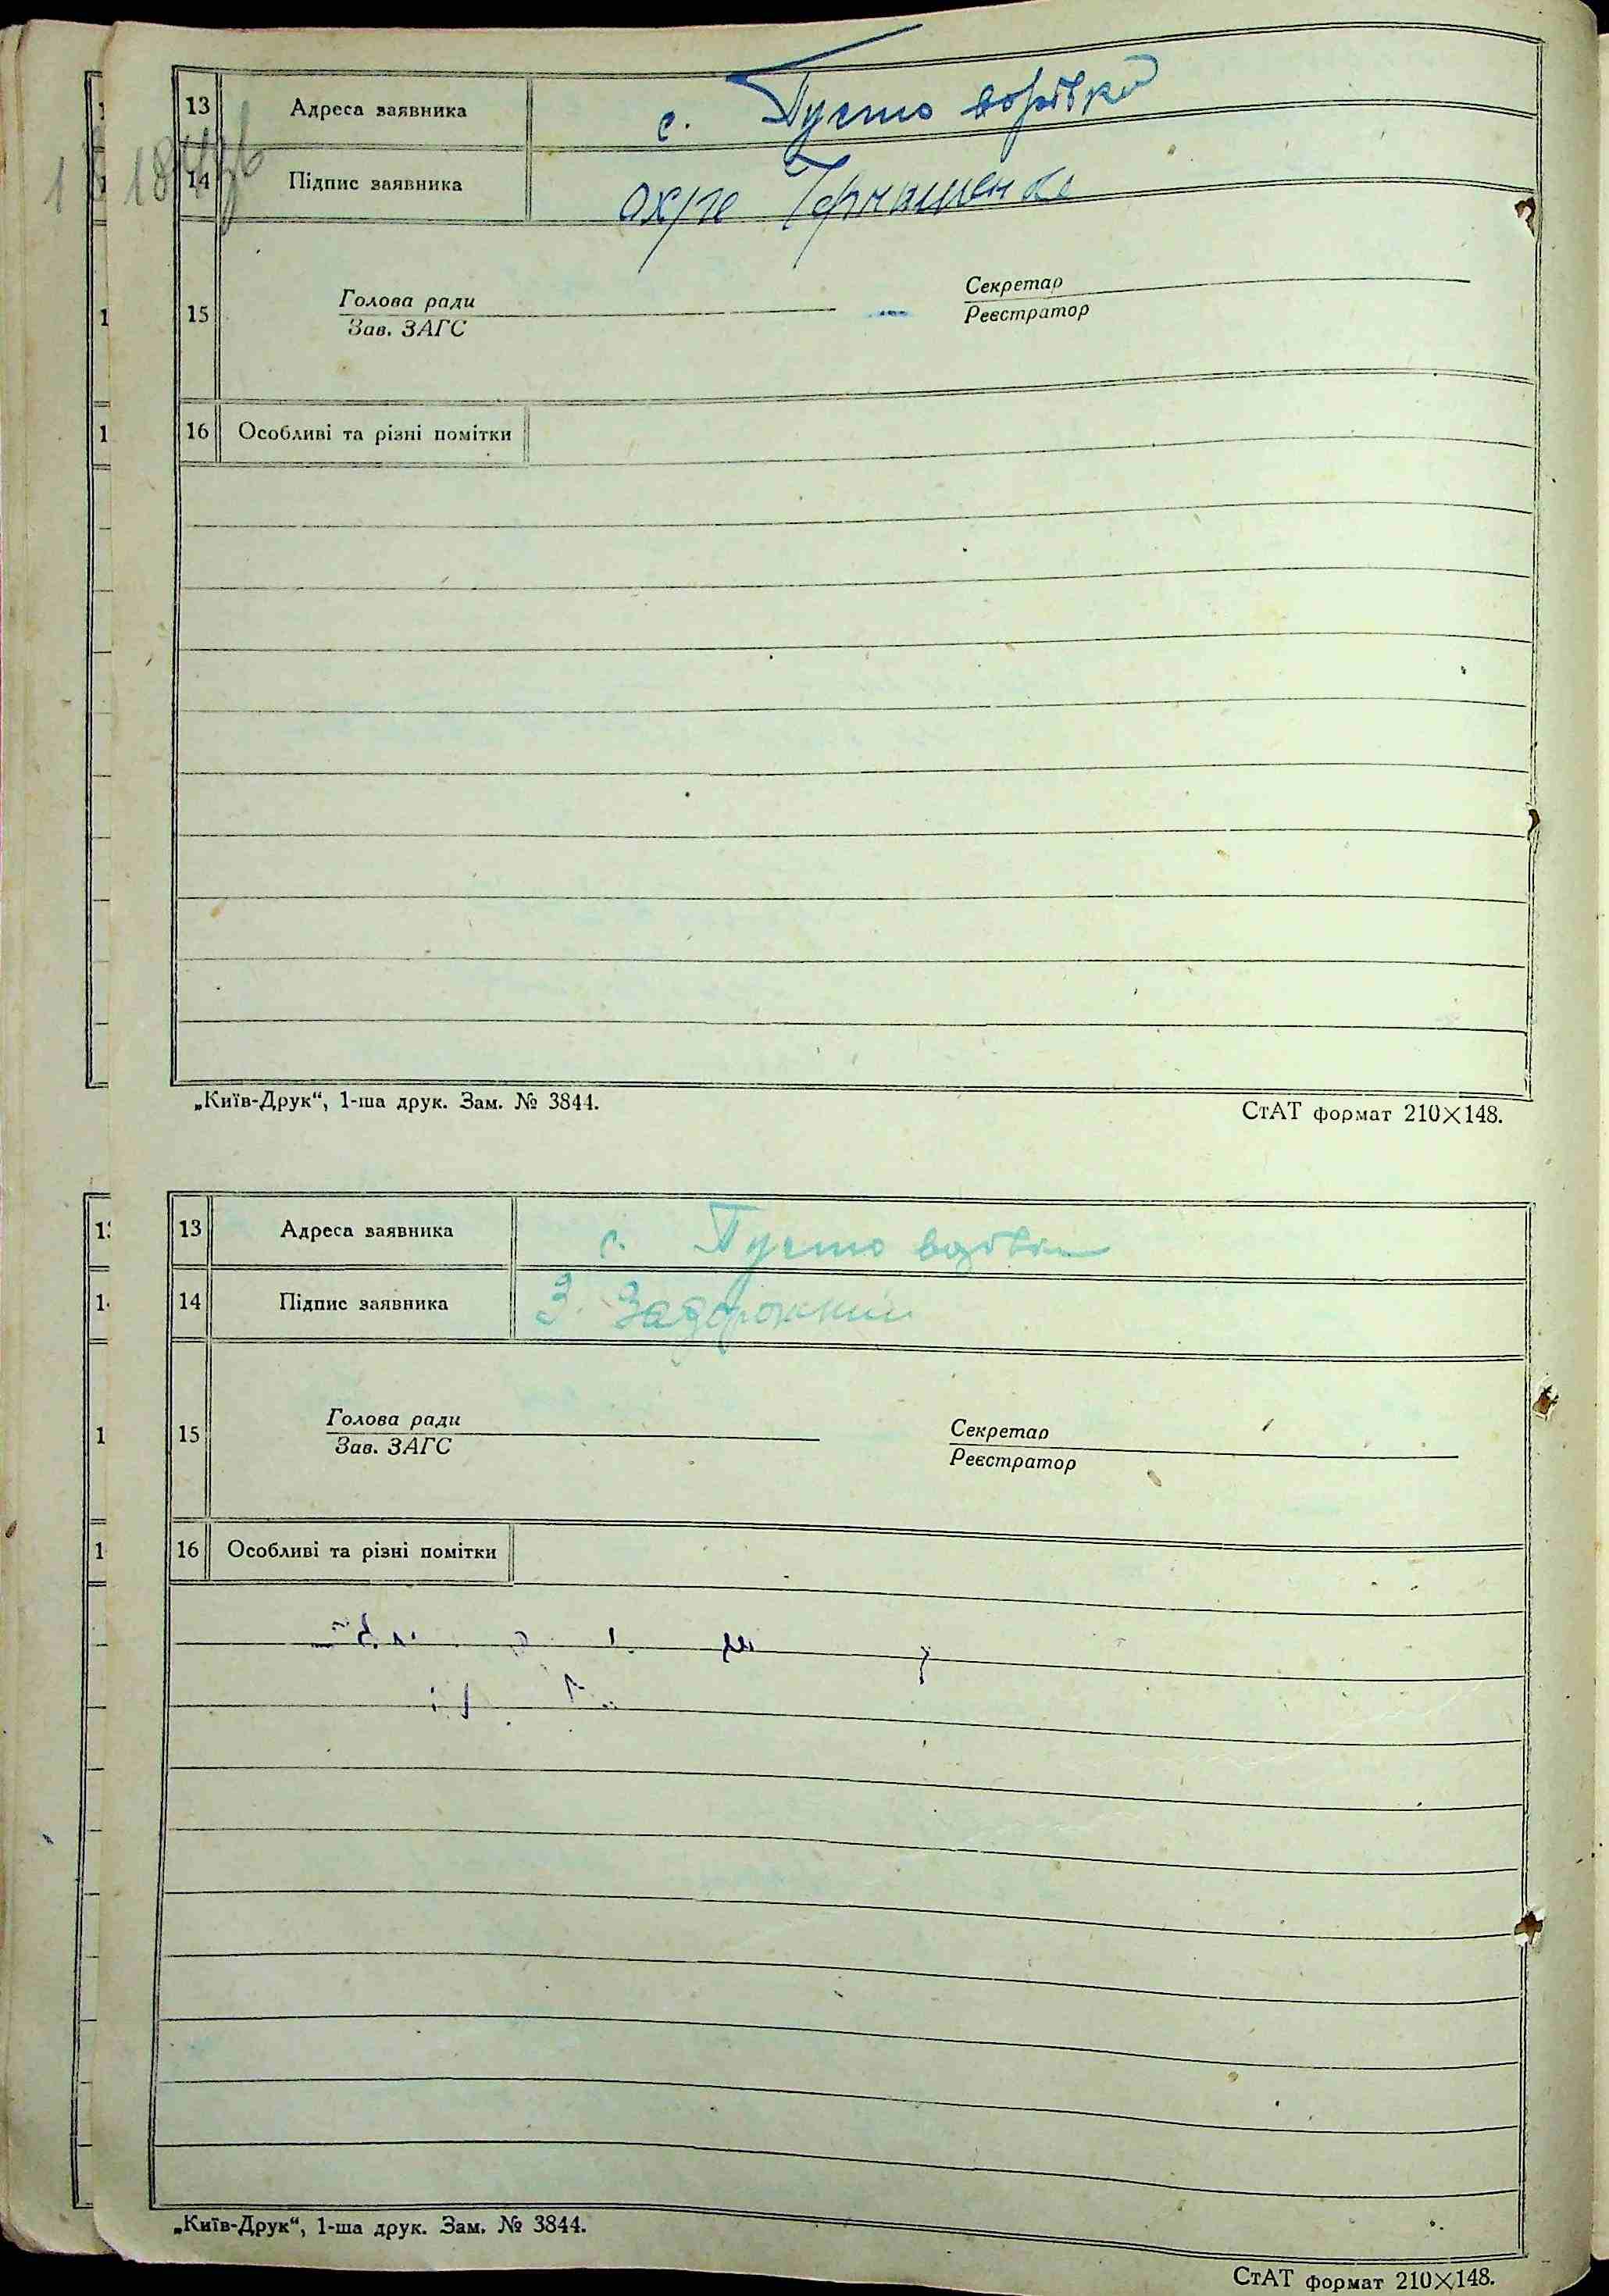 13 Адреса заявника с. Пусто
14 Підпис заявника
15 Голова ради Секретар
Зав. ЗАГС Реєстратор
16 Особливі та різні помітки
„Київ-Друк“, 1-ша друк. Зам. № 3844. СтАТ формат 210×148.
13 Адреса заявника с. Пусто
14 Підпис заявника З. Задорожний
15 Голова ради Секретар
Зав. ЗАГС Реєстратор
16 Особливі та різні помітки
„Київ-Друк“, 1-ша друк. Зам. № 3844.
СтАТ формат 210×148.